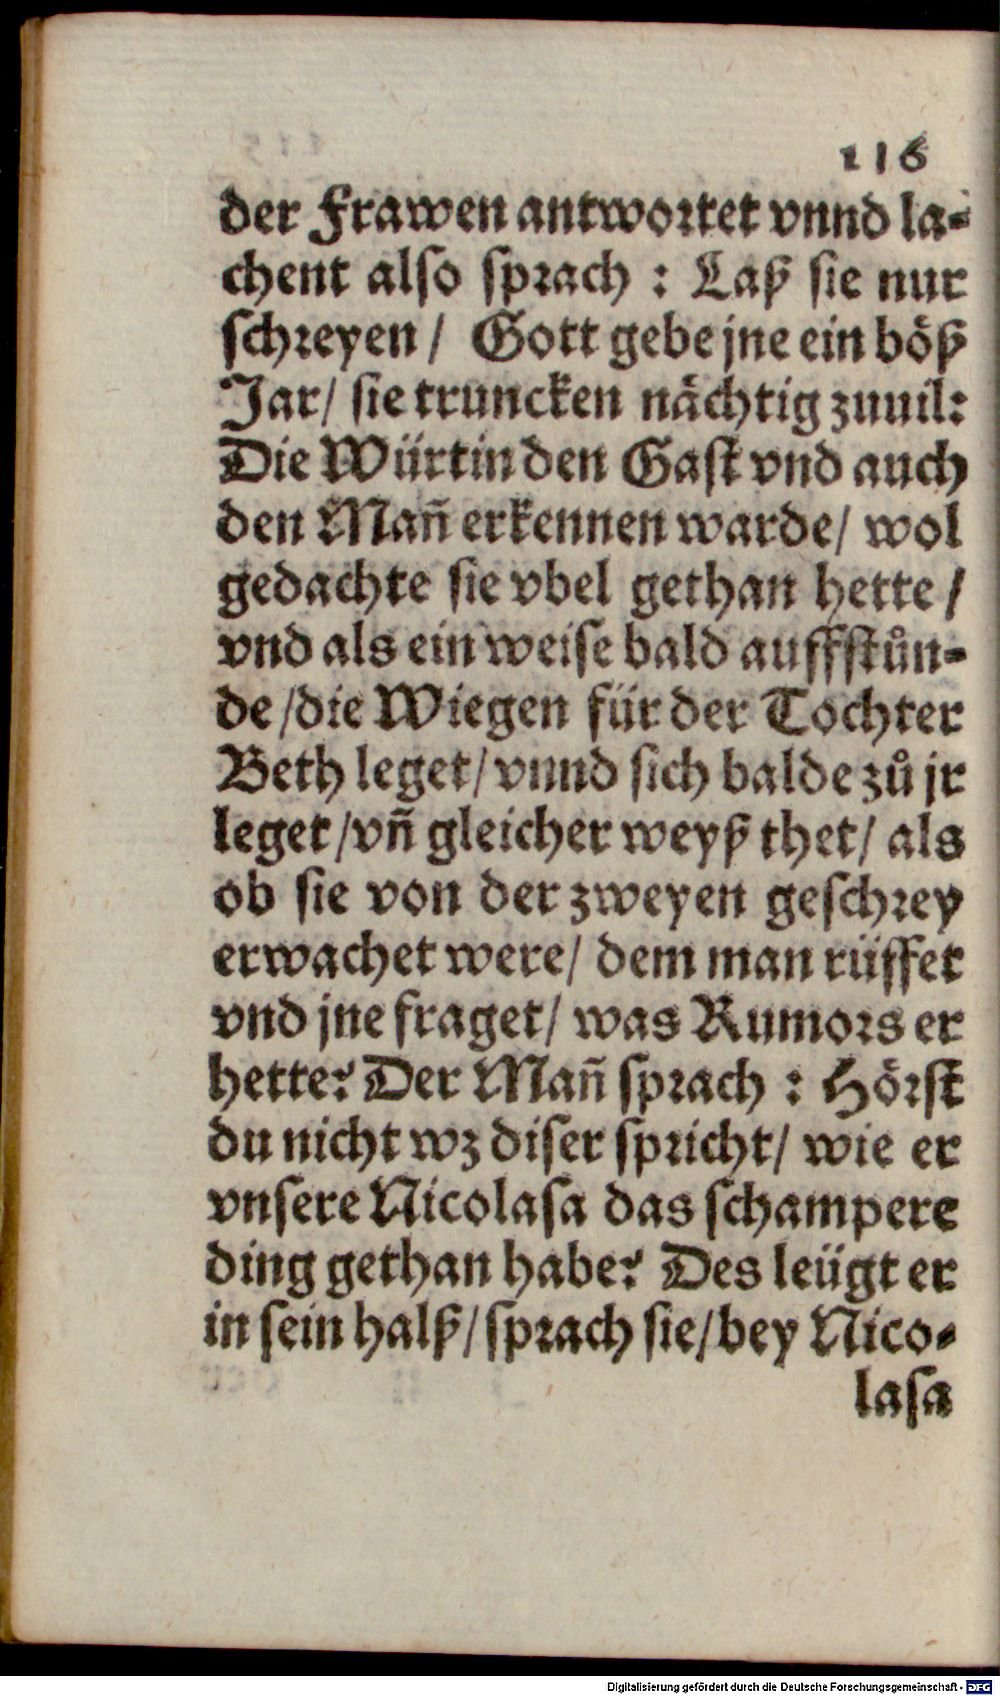 116
der Frawen antwortet vnnd la-
chent also sprach : Laß sie nur
schreyen / Gott gebe jne ein böß
Jar / sie truncken nächtig zuuil:
Die Würtin den Gast vnd auch
den Mañ erkennen warde / wol
gedachte sie vbel gethan hette /
vnd als ein weise bald auffstůn-
de / die Wiegen für der Tochter
Beth leget / vnnd sich balde zů jr
leget / vñ gleicher weyß thet / als
ob sie von der zweyen geschrey
erwachet were / dem man rüffet
vnd jne fraget / was Rumors er
hette? Der Mañ sprach : Hörst
du nicht wz diser spricht / wie er
vnsere Nicolasa das schampere
ding gethan habe? Des leügt er
in sein halß / sprach sie / bey Nico-
lasa
Digitalisierung gefördert durch die Deutsche Forschungsgemeinschaft - DFG